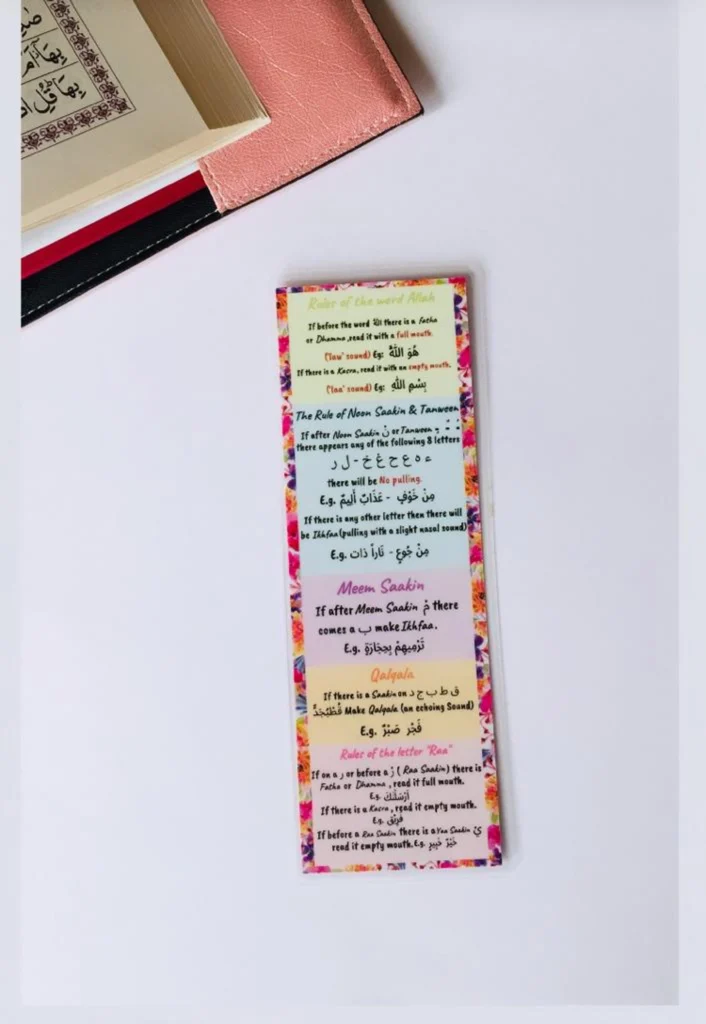 صَلَـ
بِهَا
بِهَا قُلْ
Rules of the word Allah
If before the word اللّٰه there is a Fatha
or Dhamma, read it with a full mouth.
('law' sound) Eg: هُوَ اللّٰهُ
If there is a Kasra, read it with an empty mouth.
('laa' sound) Eg: بِسْمِ اللّٰهِ
The Rule of Noon Saakin & Tanween
If after Noon Saakin نْ or Tanween ـٍ ـً ـٌ
there appears any of the following 8 letters
ء ه ع ح غ خ - ل ر
there will be No pulling.
E.g. مِنْ خَوْفٍ - عَذَابٌ أَلِيمٌ
If there is any other letter then there will
be Ikhfaa (pulling with a slight nasal sound)
E.g. مِنْ جُوعٍ - نَاراً ذات
Meem Saakin
If after Meem Saakin مْ there
comes a ب make Ikhfaa.
E.g. تَرْمِيهِمْ بِحِجَارَةٍ
Qalqala
If there is a Saakin on ق ط ب ج د
قُطْبُجَدٍّ Make Qalqala (an echoing Sound)
E.g. فَجْر صَبْرٌ
Rules of the letter "Raa"
If on a ر or before a رْ ( Raa Saakin) there is
Fatha or Dhamma, read it full mouth.
E.g. أَرْسَلْنَكَ
If there is a Kasra, read it empty mouth.
E.g. فَرِيْق
If before a Raa Saakin there is a Yaa Saakin يْ
read it empty mouth. E.g. خَيْرٌ خَبِيرٍ